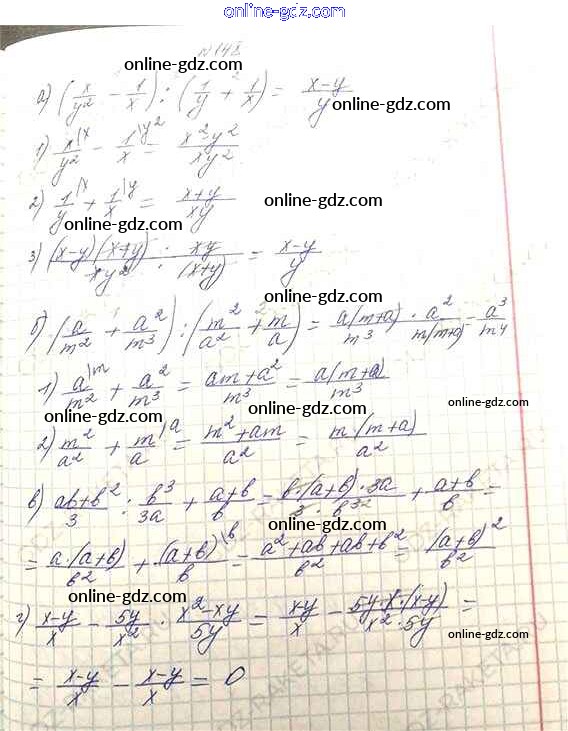 online-gdz.com
N 148
online-gdz.com
а) (x/y² - 1/x) : (1/y + 1/x) = (x-y)/y
online-gdz.com
1) x/y² |x - 1/x |y² = (x²y²)/(xy²)
2) 1/y |x + 1/x |y = (x+y)/(xy)
online-gdz.com
online-gdz.com
3) (x-y)(x+y)/(xy²) : xy/(x+y) = (x-y)/y
online-gdz.com
б) (a/m² + a²/m³) : (m²/a² + m/a) = a(m+a)/m³ · a²/m(m+a) = a³/m⁴
online-gdz.com
1) a/m² |m + a²/m³ = (am+a²)/m³ = a(m+a)/m³
online-gdz.com
online-gdz.com
2) m²/a² + m/a |a = (m²+am)/a² = m(m+a)/a²
online-gdz.com
в) (ab+b²)/3 : b³/3a + (a+b)/b = b·(a+b)·3a/3·b³² + (a+b)/b =
online-gdz.com
= a·(a+b)/b² + (a+b)/b |b = (a²+ab+ab+b²)/b² = (a+b)²/b²
online-gdz.com
online-gdz.com
г) (x-y)/x - 5y/x² · (x²-xy)/5y = (x-y)/x - 5y·x·(x-y)/x²·5y =
online-gdz.com
= (x-y)/x - (x-y)/x = 0
online-gdz.com